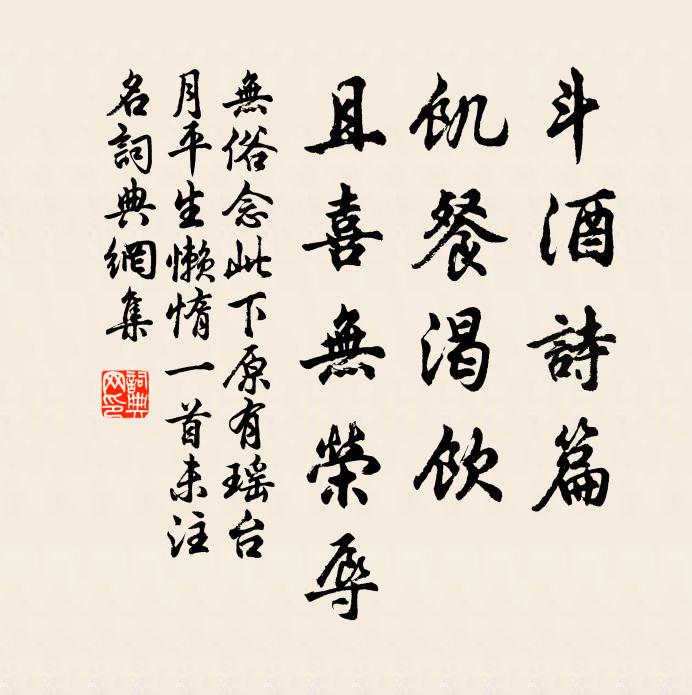 斗酒詩篇
飢餐渴饮
且喜無榮辱
無俗念此下原有瑶台
月平生懒惰一首未注
名詞典網集
詞典
网印